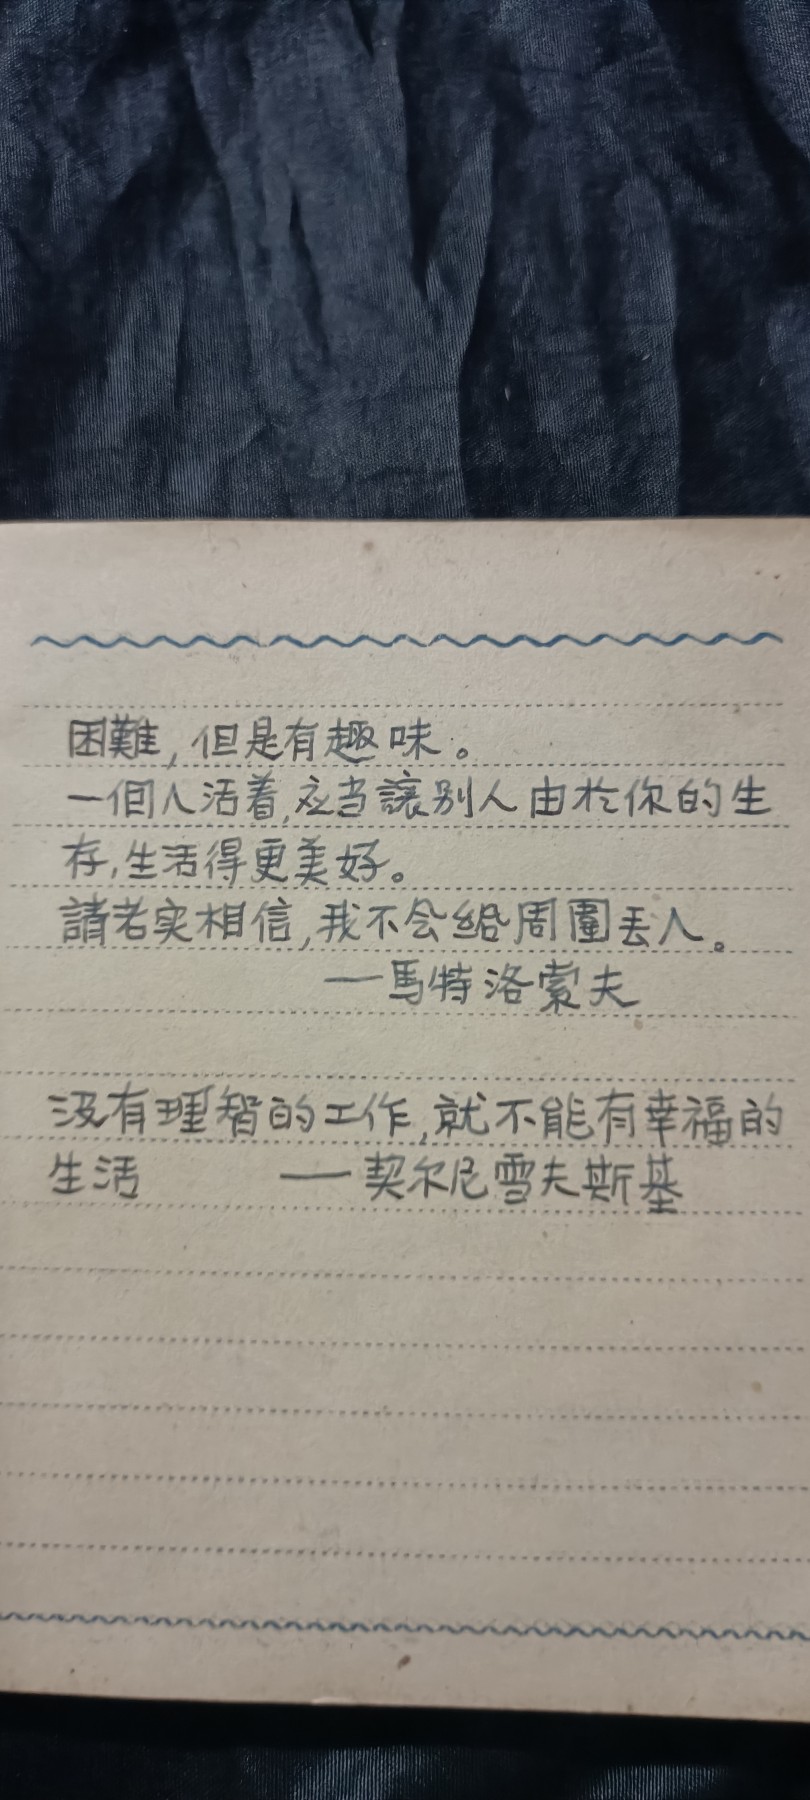 困難,但是有趣味。
一個人活着,应当讓别人由於你的生
存,生活得更美好。
請老实相信,我不会給周圍丢人。
——馬特洛索夫
没有理智的工作,就不能有幸福的
生活 ——契尔尼雪夫斯基